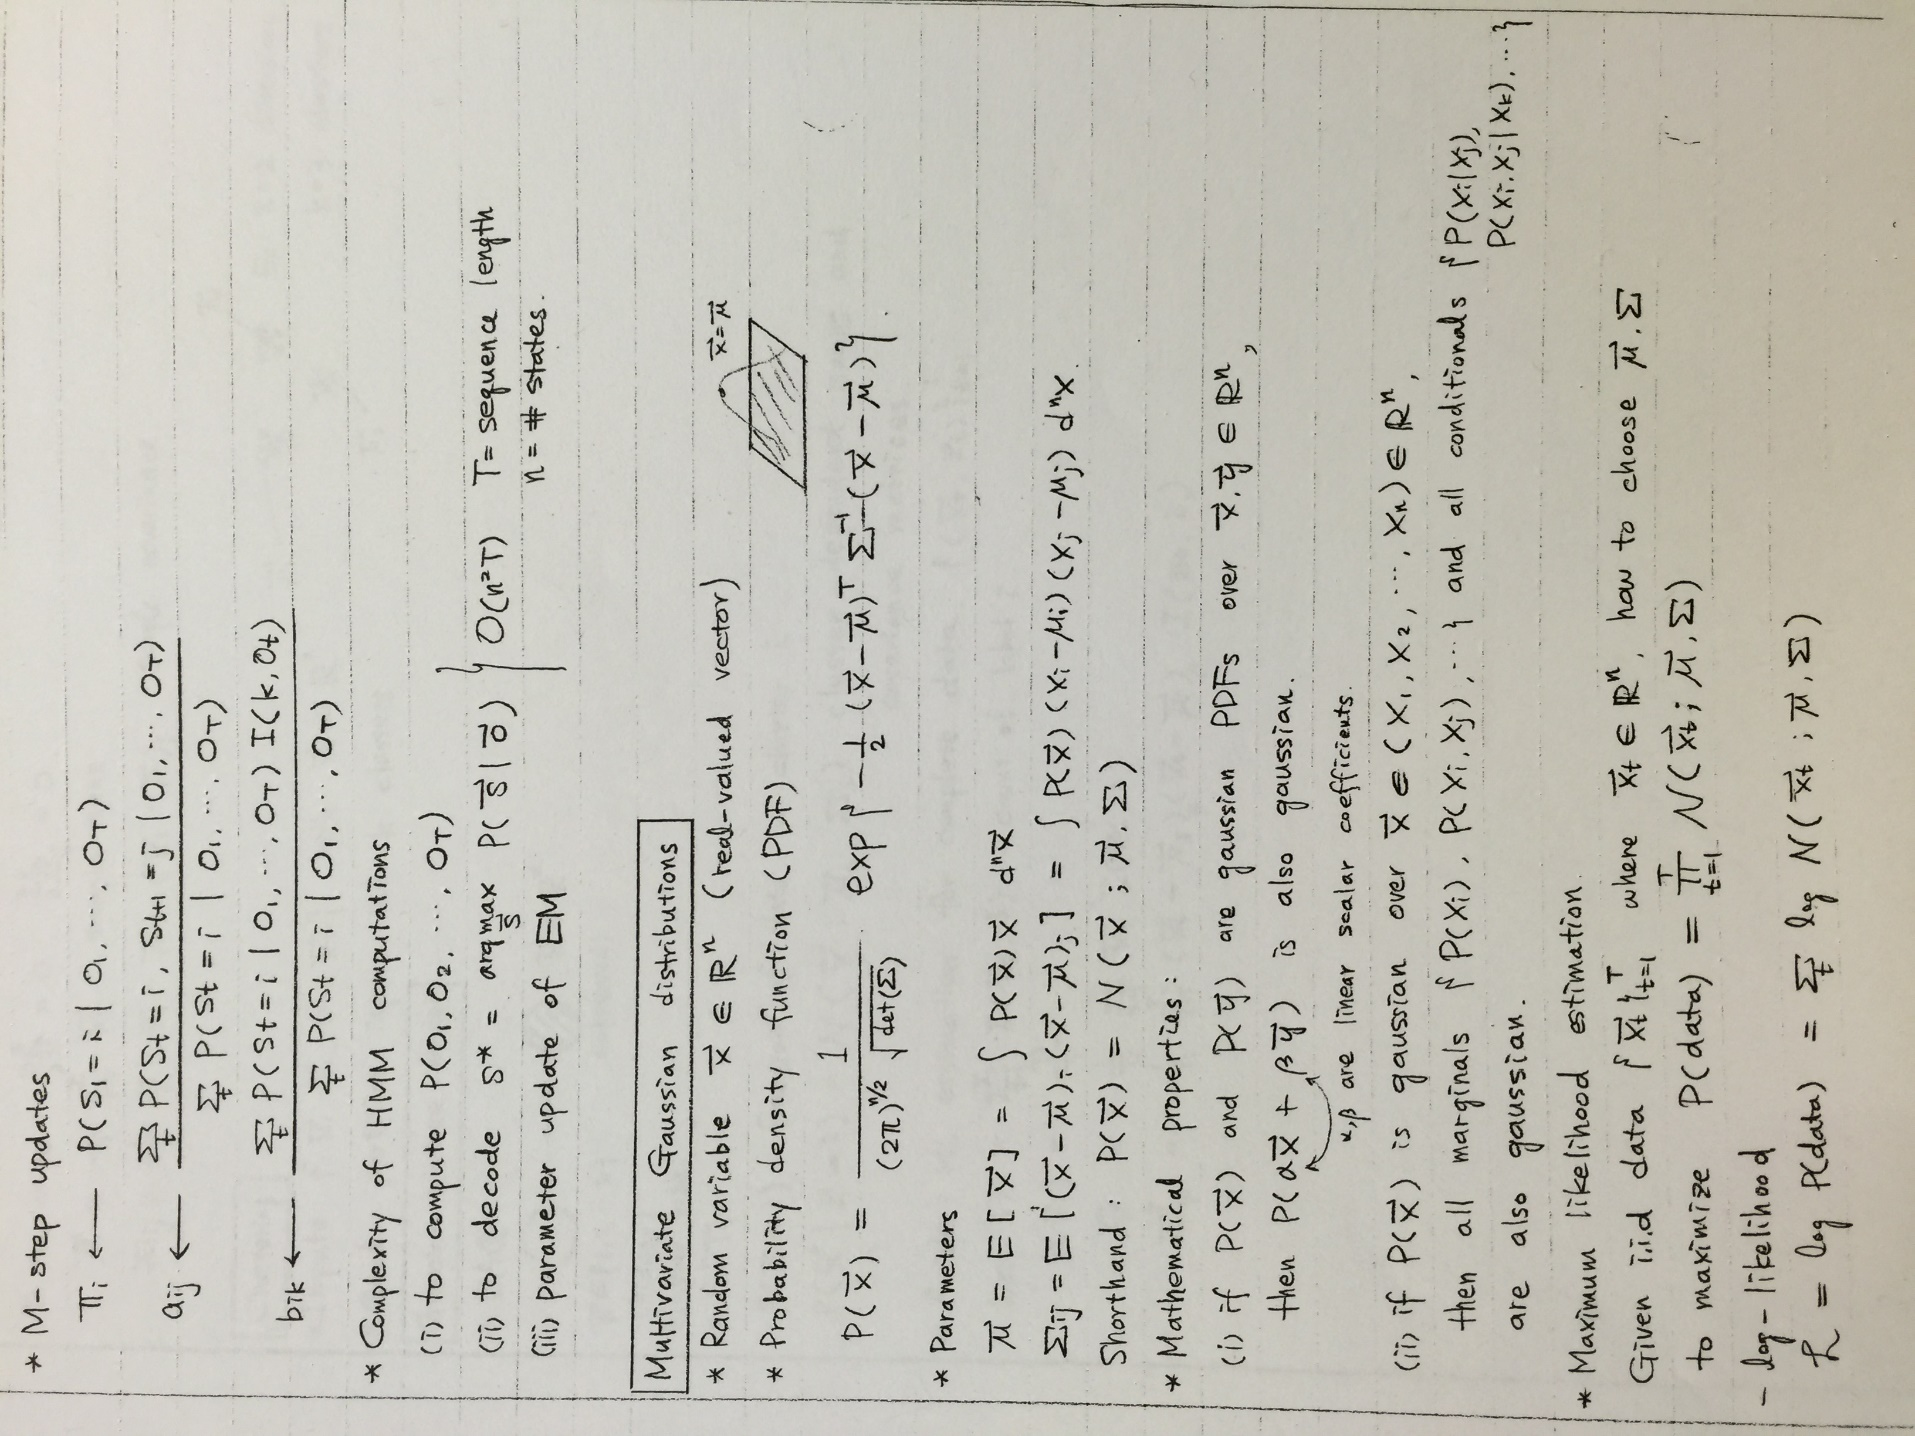 * M-step updates
πi ← P(S1=i | O1, ..., OT)
aij ← Σt P(St=i, St+1=j | O1, ..., OT) / Σt P(St=i | O1, ..., OT)
bik ← Σt P(St=i | O1, ..., OT) I(k, Ot) / Σt P(St=i | O1, ..., OT)
* Complexity of HMM computations
(i) to compute P(O1, O2, ..., OT)
(ii) to decode s* = argmax s⃗ P(s⃗ | o⃗) } O(n²T) T = sequence length
(iii) parameter update of EM n = # states.
Multivariate Gaussian distributions
* Random variable x⃗ ∈ ℝⁿ (real-valued vector) x⃗=μ⃗
* Probability density function (PDF)
P(x⃗) = 1 / ((2π)^(n/2) √det(Σ)) exp{ -1/2 (x⃗-μ⃗)ᵀ Σ⁻¹ (x⃗-μ⃗) }.
* Parameters
μ⃗ = E[x⃗] = ∫ P(x⃗) x⃗ dⁿx⃗
Σij = E[(x⃗-μ⃗)i (x⃗-μ⃗)j] = ∫ P(x⃗)(xi-μi)(xj-μj) dⁿx.
Shorthand : P(x⃗) = N(x⃗; μ⃗, Σ)
* Mathematical properties :
(i) if P(x⃗) and P(y⃗) are gaussian PDFs over x⃗, y⃗ ∈ ℝⁿ,
then P(αx⃗ + βy⃗) is also gaussian.
α,β are linear scalar coefficients.
(ii) if P(x⃗) is gaussian over x⃗ ∈ (x1, x2, ..., xn) ∈ ℝⁿ,
then all marginals {P(xi), P(xi, xj), ...} and all conditionals {P(xi|xj),
P(xi, xj | xk), ...}
are also gaussian.
* Maximum likelihood estimation.
Given i.i.d data {x⃗t}ᵀt=1 where x⃗t ∈ ℝⁿ, how to choose μ⃗, Σ
to maximize P(data) = ∏ᵀt=1 N(x⃗t; μ⃗, Σ)
- log-likelihood
ℒ = log P(data) = Σt log N(x⃗t; μ⃗, Σ)